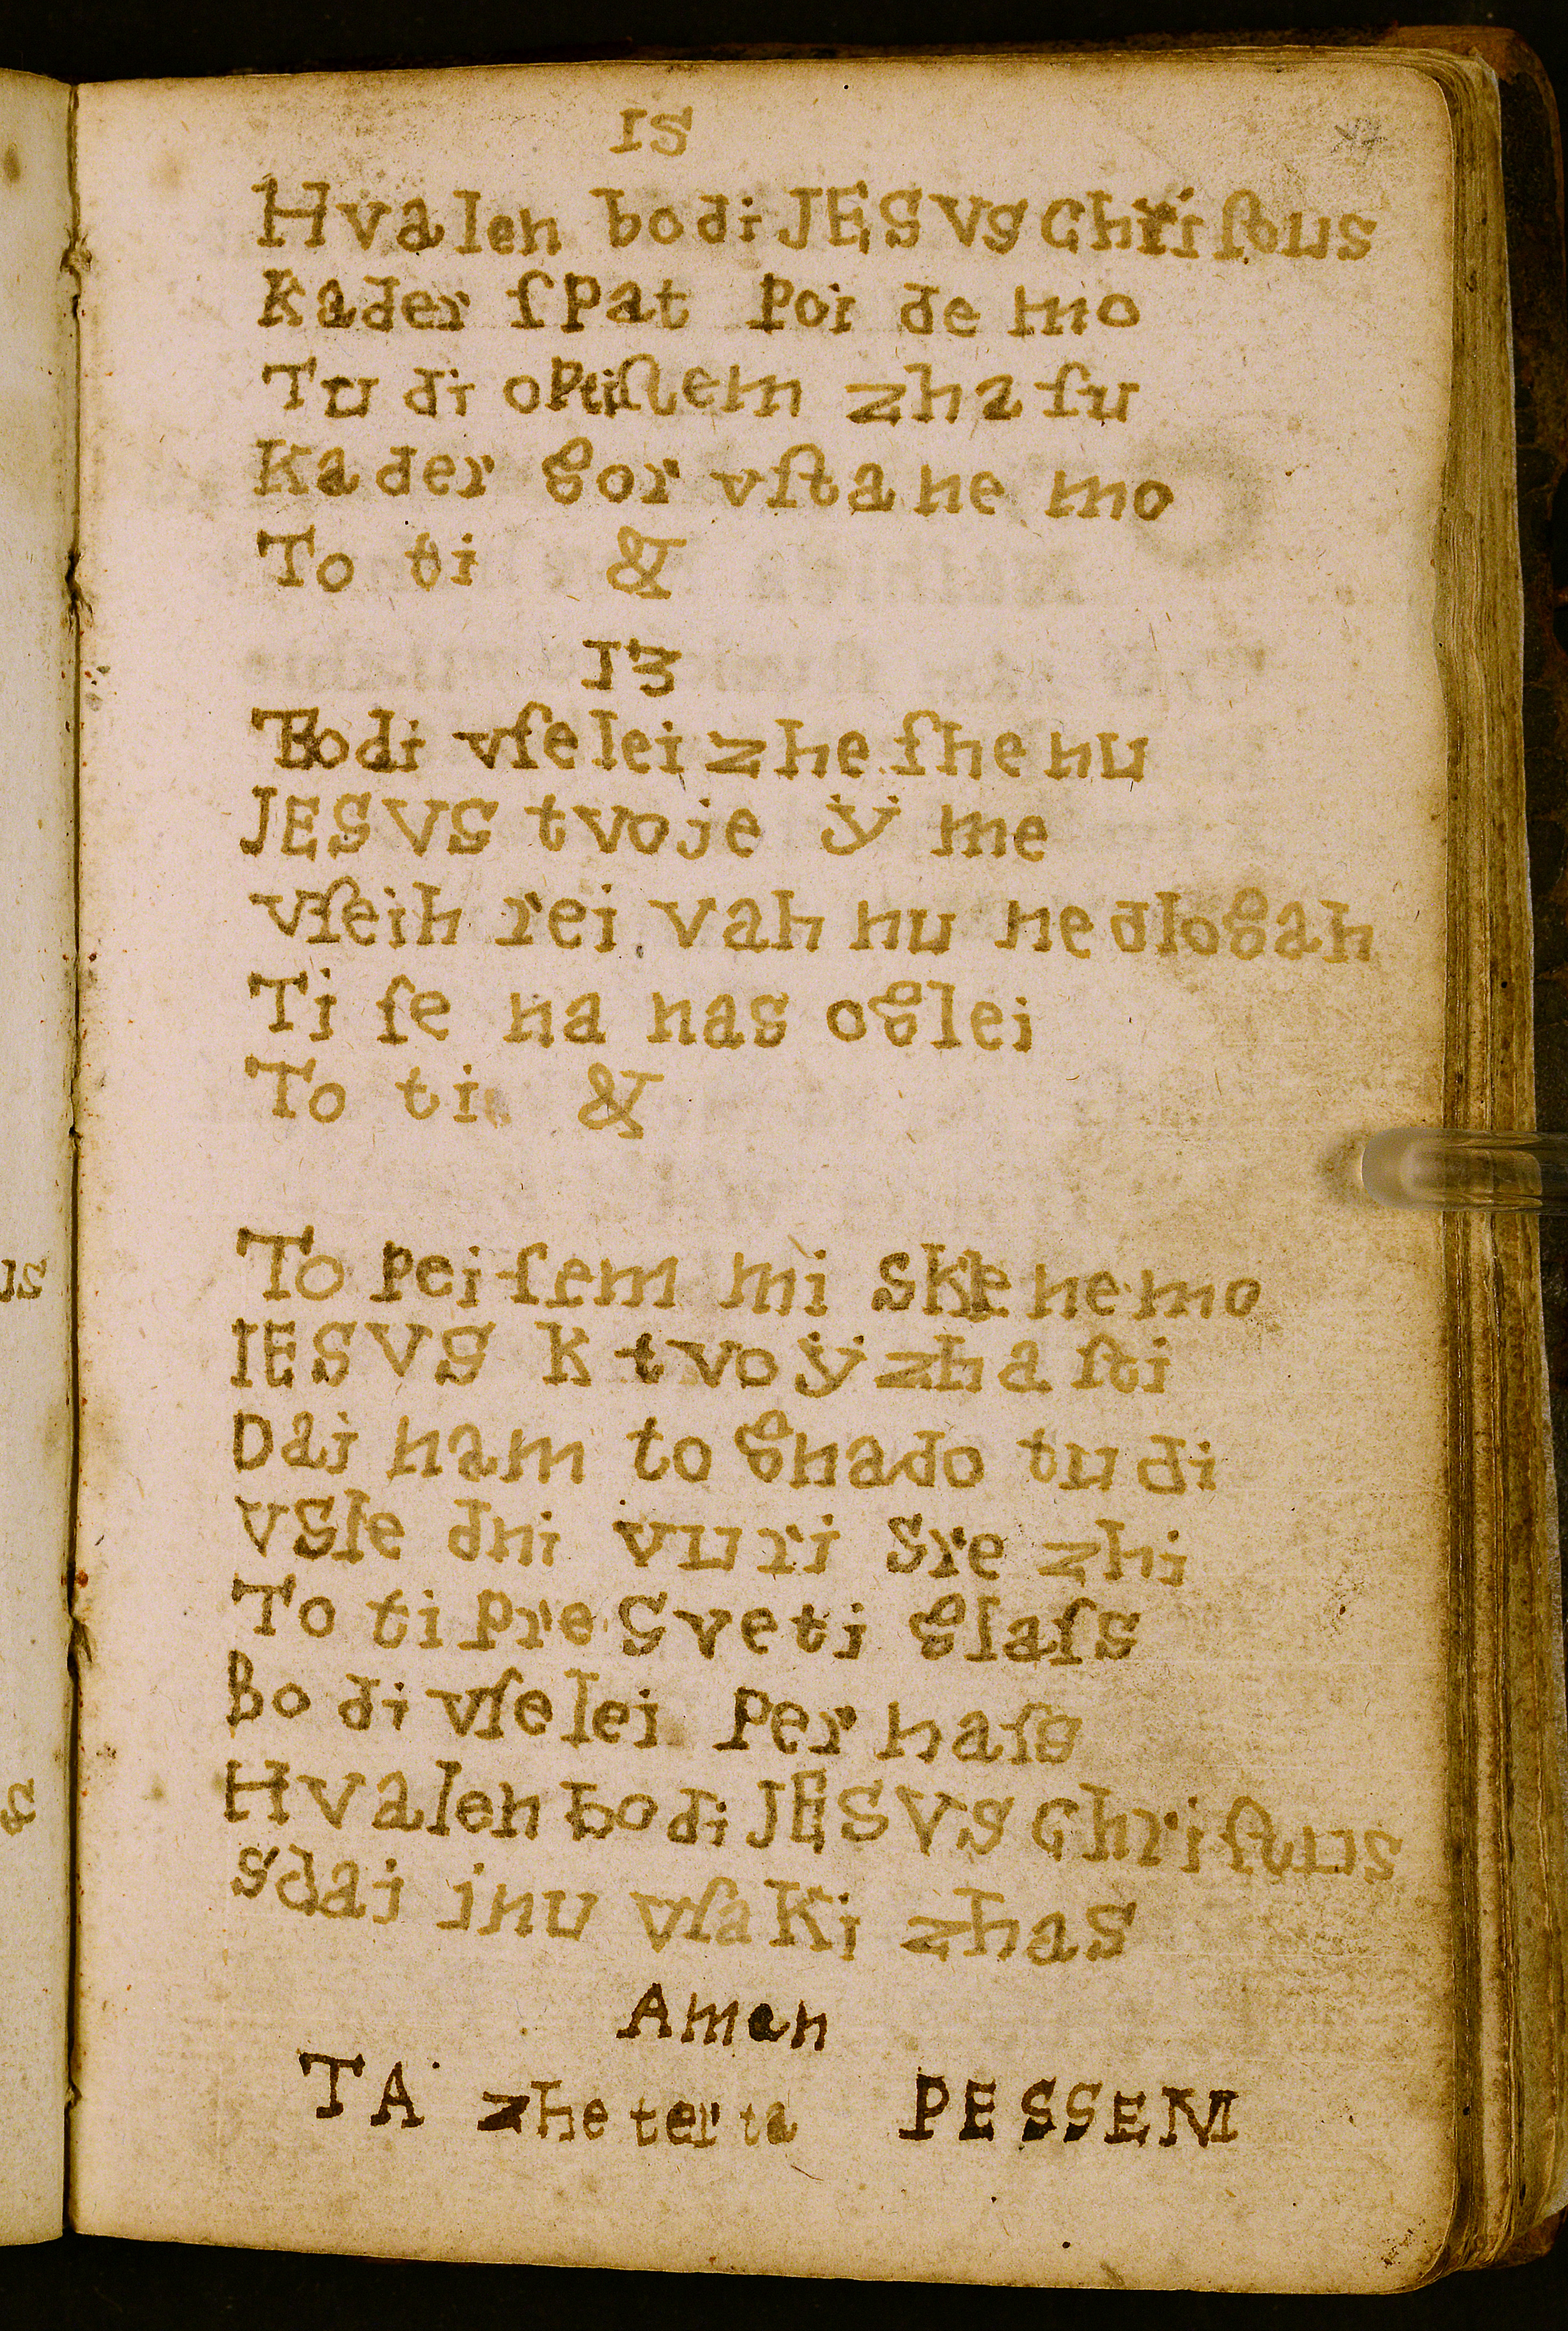 IS
Hvalen bodi JESVS Chriſtus
Kader ſpat poi de mo
Tudi optiſtem zhaſu
Kader gor vſtanemo
To ti &
I3
Bodi vſelei zheſhenu
JESVS tvoje ÿme
vſeih reivah nu nedlogah
Ti ſe na nas oglei
To ti &
To peiſem mi sklenemo
IESVS K tvoÿ zhaſti
Dai nam to gnado tudi
vsſe dni vuri srezhi
To ti presveti glaſs
Bodi vſelei per naſs
Hvalen bodi JESVS Chriſtus
sdai inu vſaki zhas
Amen
TA zheterta PESSEM